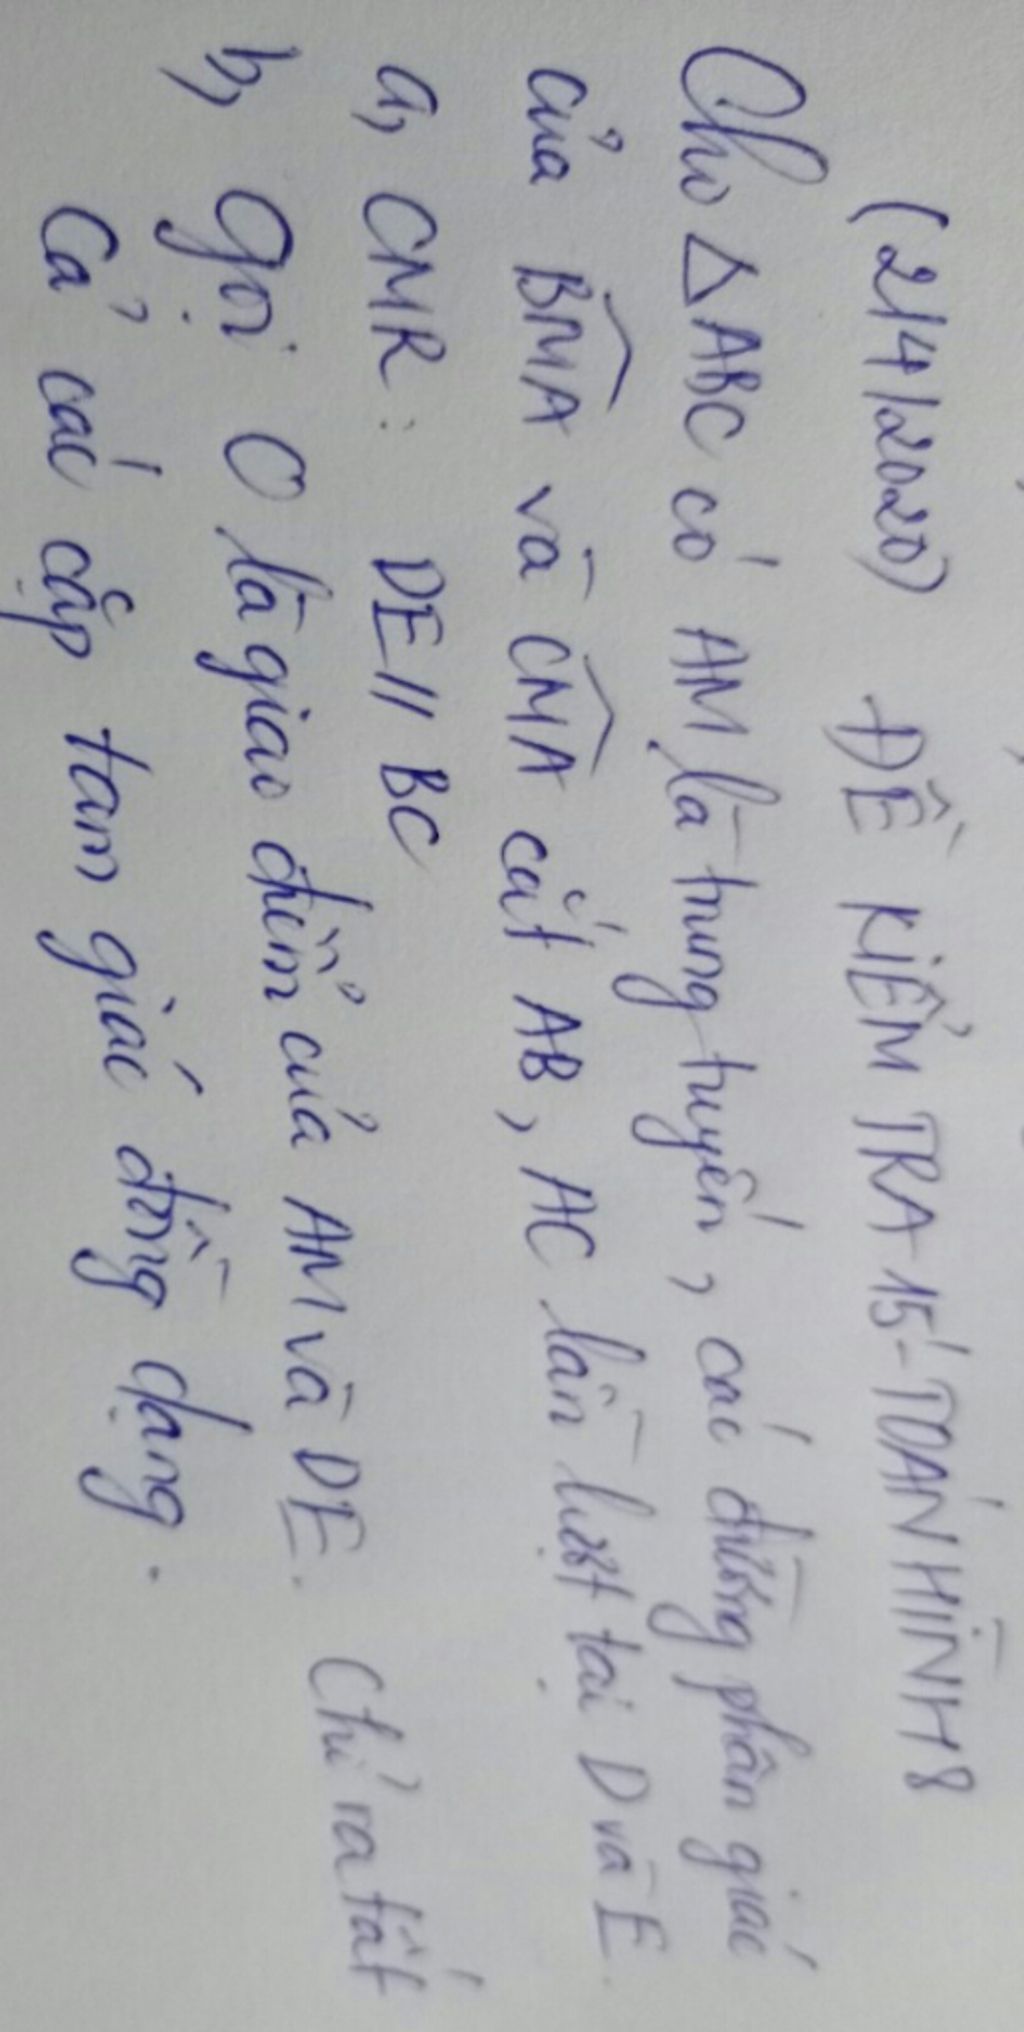 (2/4/2020) ĐỀ KIỂM TRA 15'-TOÁN HÌNH 8
Cho △ABC có AM là trung tuyến, các đường phân giác
của BMA và CMA cắt AB, AC lần lượt tại D và E.
a, CMR: DE // BC
b, Gọi O là giao điểm của AM và DE. Chỉ ra tất
Cả các cặp tam giác đồng dạng.